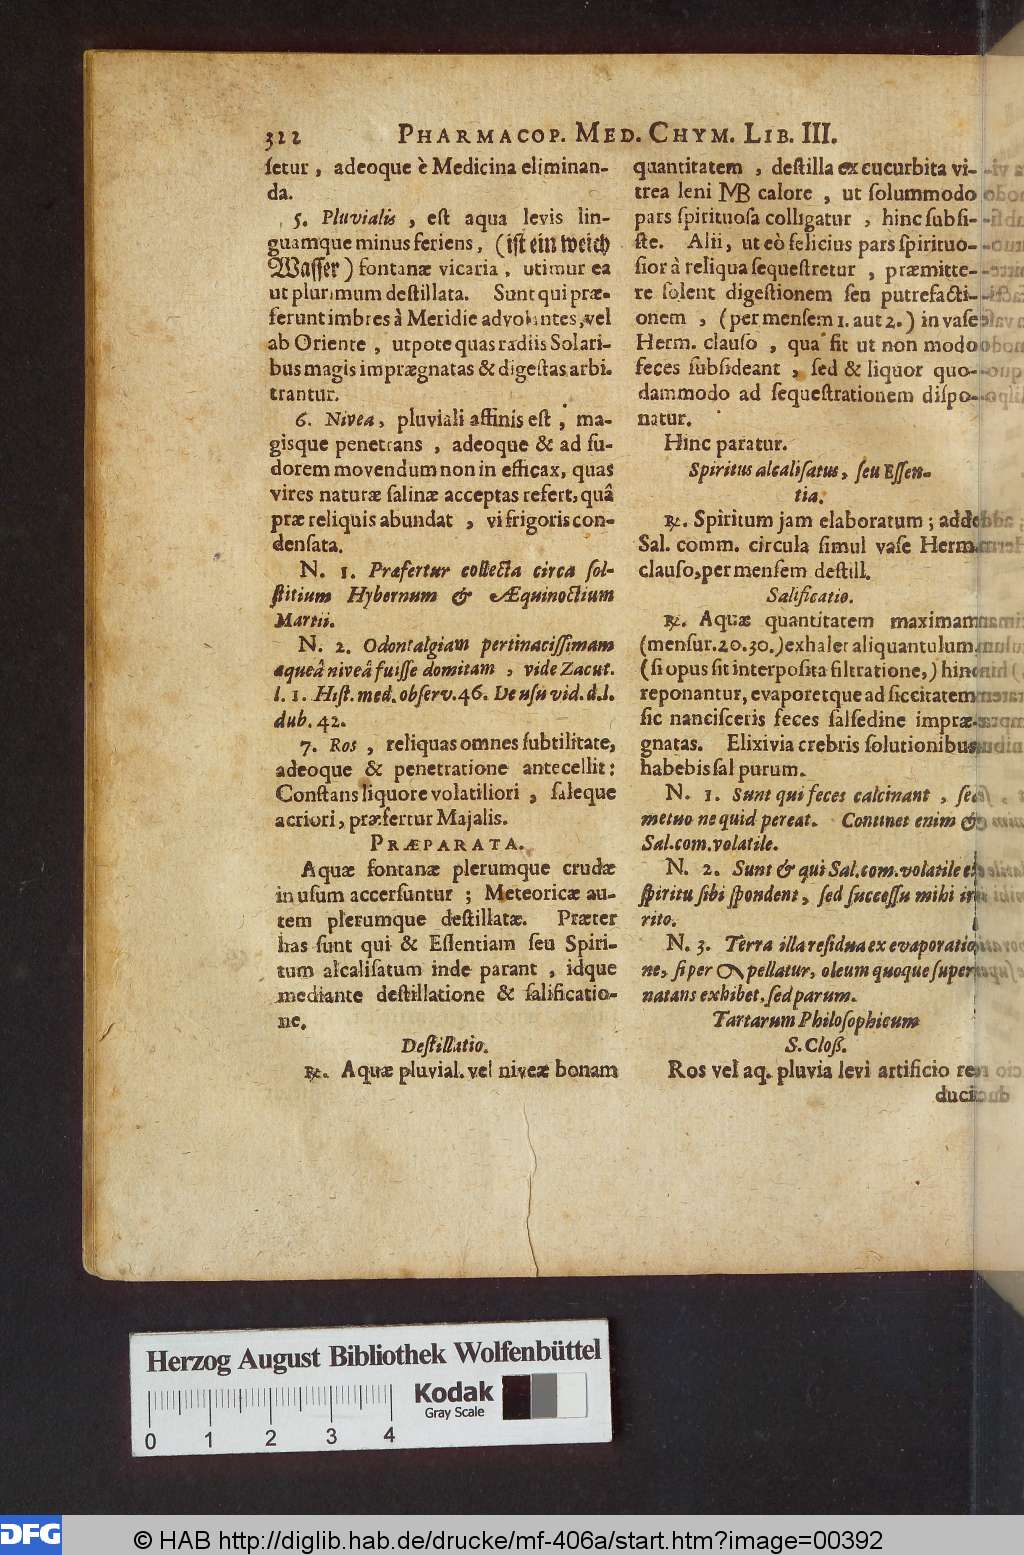 322 PHARMACOP. MED. CHYM. LIB. III.
ſetur, adeoque è Medicina eliminan-
da.
5. Pluvialis, eſt aqua levis lin-
guamque minus feriens, (iſt ein weich
Waſſer) fontanæ vicaria, utimur ea
ut plurimum deſtillata. Sunt qui præ-
ferunt imbres à Meridie advolantes, vel
ab Oriente, utpote quas radiis Solari-
bus magis imprægnatas & digeſtas arbi-
trantur.
6. Nivea, pluviali affinis eſt, ma-
gisque penetrans, adeoque & ad ſu-
dorem movendum non in efficax, quas
vires naturæ ſalinæ acceptas refert, quâ
præ reliquis abundat, vi frigoris con-
denſata.
N. 1. Præfertur collecta circa ſol-
ſtitium Hybernum & Æquinoctium
Martii.
N. 2. Odontalgiam pertinaciſſimam
aqueâ niveâ fuiſſe domitam, vide Zacut.
l. 1. Hiſt. med. obſerv. 46. De uſu vid. d. l.
dub. 42.
7. Ros, reliquas omnes ſubtilitate,
adeoque & penetratione antecellit:
Conſtans liquore volatiliori, ſaleque
acriori, præfertur Majalis.
PRÆPARATA.
Aquæ fontanæ plerumque crudæ
in uſum accerſuntur; Meteoricæ au-
tem plerumque deſtillatæ. Præter
has ſunt qui & Eſſentiam ſeu Spiri-
tum alcaliſatum inde parant, idque
mediante deſtillatione & ſalificatio-
ne.
Deſtillatio.
℞. Aquæ pluvial. vel niveæ bonam
quantitatem, deſtilla ex cucurbita vi-
trea leni MB calore, ut ſolummodo
pars ſpirituoſa colligatur, hinc ſubſi-
ſte. Alii, ut eò felicius pars ſpirituo-
ſior à reliqua ſequeſtretur, præmitte-
re ſolent digeſtionem ſeu putrefacti-
onem, (per menſem 1. aut 2.) in vaſe
Herm. clauſo, qua ſit ut non modo
feces ſubſideant, ſed & liquor quo-
dammodo ad ſequeſtrationem diſpo-
natur.
Hinc paratur.
Spiritus alcaliſatus, ſeu Eſſen-
tia.
℞. Spiritum jam elaboratum; adde
Sal. comm. circula ſimul vaſe Herm.
clauſo, per menſem deſtill.
Salificatio.
℞. Aquæ quantitatem maximam
(menſur. 20. 30.) exhaler aliquantulum,
(ſi opus ſit interpoſita filtratione,) hinc
reponantur, evaporetque ad ſiccitatem
ſic nanciſceris feces ſalſedine impræ-
gnatas. Elixivia crebris ſolutionibus
habebis ſal purum.
N. 1. Sunt qui feces calcinant, ſed
metuo ne quid pereat. Continet enim &
Sal. com. volatile.
N. 2. Sunt & qui Sal. com. volatile ex
ſpiritu ſibi ſpondent, ſed ſucceſſu mihi
rito.
N. 3. Terra illa reſidua ex evaporatio
ne, ſi per pellatur, oleum quoque ſuper
natans exhibet, ſed parum.
Tartarum Philoſophicum
S. Cloß.
Ros vel aq. pluvia levi artificio re
duci
Herzog August Bibliothek Wolfenbüttel
Kodak
Gray Scale
0 1 2 3 4
DFG
© HAB http://diglib.hab.de/drucke/mf-406a/start.htm?image=00392